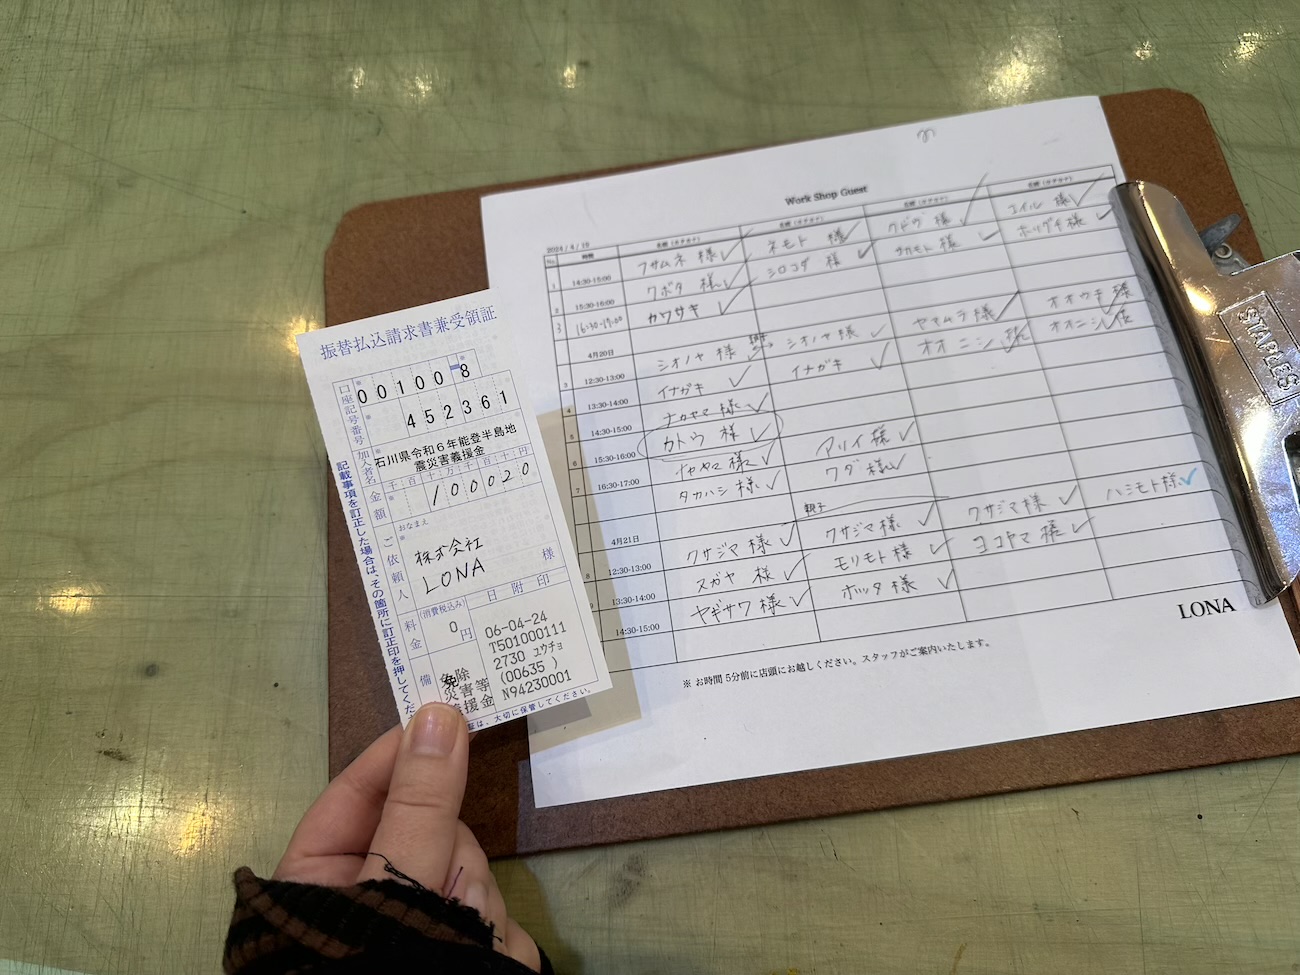 振替払込請求書兼受領証
口座記号番号
00100-8
452361
加入者名
石川県令和6年能登半島地
震災害義援金
金額
千百十万千百十円
100020
ご依頼人
おなまえ
株式会社
LONA
様
料金
(消費税込み)
0
円
日附印
06-04-24
T501000111
2730 ユウチョ
(00635 )
N94230001
備
免除
災害等
義援金
記載事項を訂正した場合は、その箇所に訂正印を押してくださ
証は、大切に保管してください。
Work Shop Guest
No. 時間 名前(カタカナ) 名前(カタカナ) 名前(カタカナ) 名前(カタカナ)
1 14:30-15:00 フサムネ 様 ネモト 様 クドウ 様 エイル 様
2 15:30-16:00 クボタ 様 シロコダ 様 サカモト 様 ホリグチ 様
3 16:30-17:00 カワサキ
4月20日
3 12:30-13:00 シオノヤ 様 シオノヤ 様 ヤマムラ 様 オオウチ 様
4 13:30-14:00 イナガキ イナガキ オオニシ オオニシ
5 14:30-15:00 ナカヤマ 様
6 15:30-16:00 カトウ 様 アリイ 様
7 16:30-17:00 様 ワダ 様
タカハシ 様
4月21日
親子
8 12:30-13:00 クサジマ 様 クサジマ 様 クサジマ 様 ハシモト 様
9 13:30-14:00 スガヤ 様 モリモト 様 ヨコヤマ 様
14:30-15:00 ヤギサワ 様 ホッタ 様
LONA
※ お時間 5分前に店頭にお越しください。スタッフがご案内いたします。
STAPLES